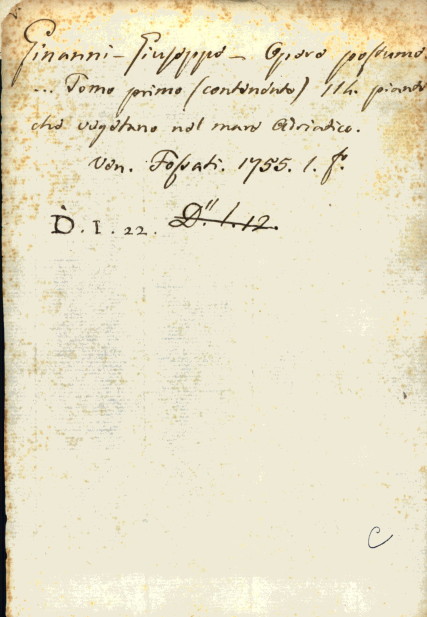 Ginanni - Giuseppe - Opere postume.
... Tomo primo (contenente) 114. piante
che vegetano nel mare Adriatico.
Ven. Fossati. 1755. 1. fo.
D. I. 22. D." 1. 12.
C